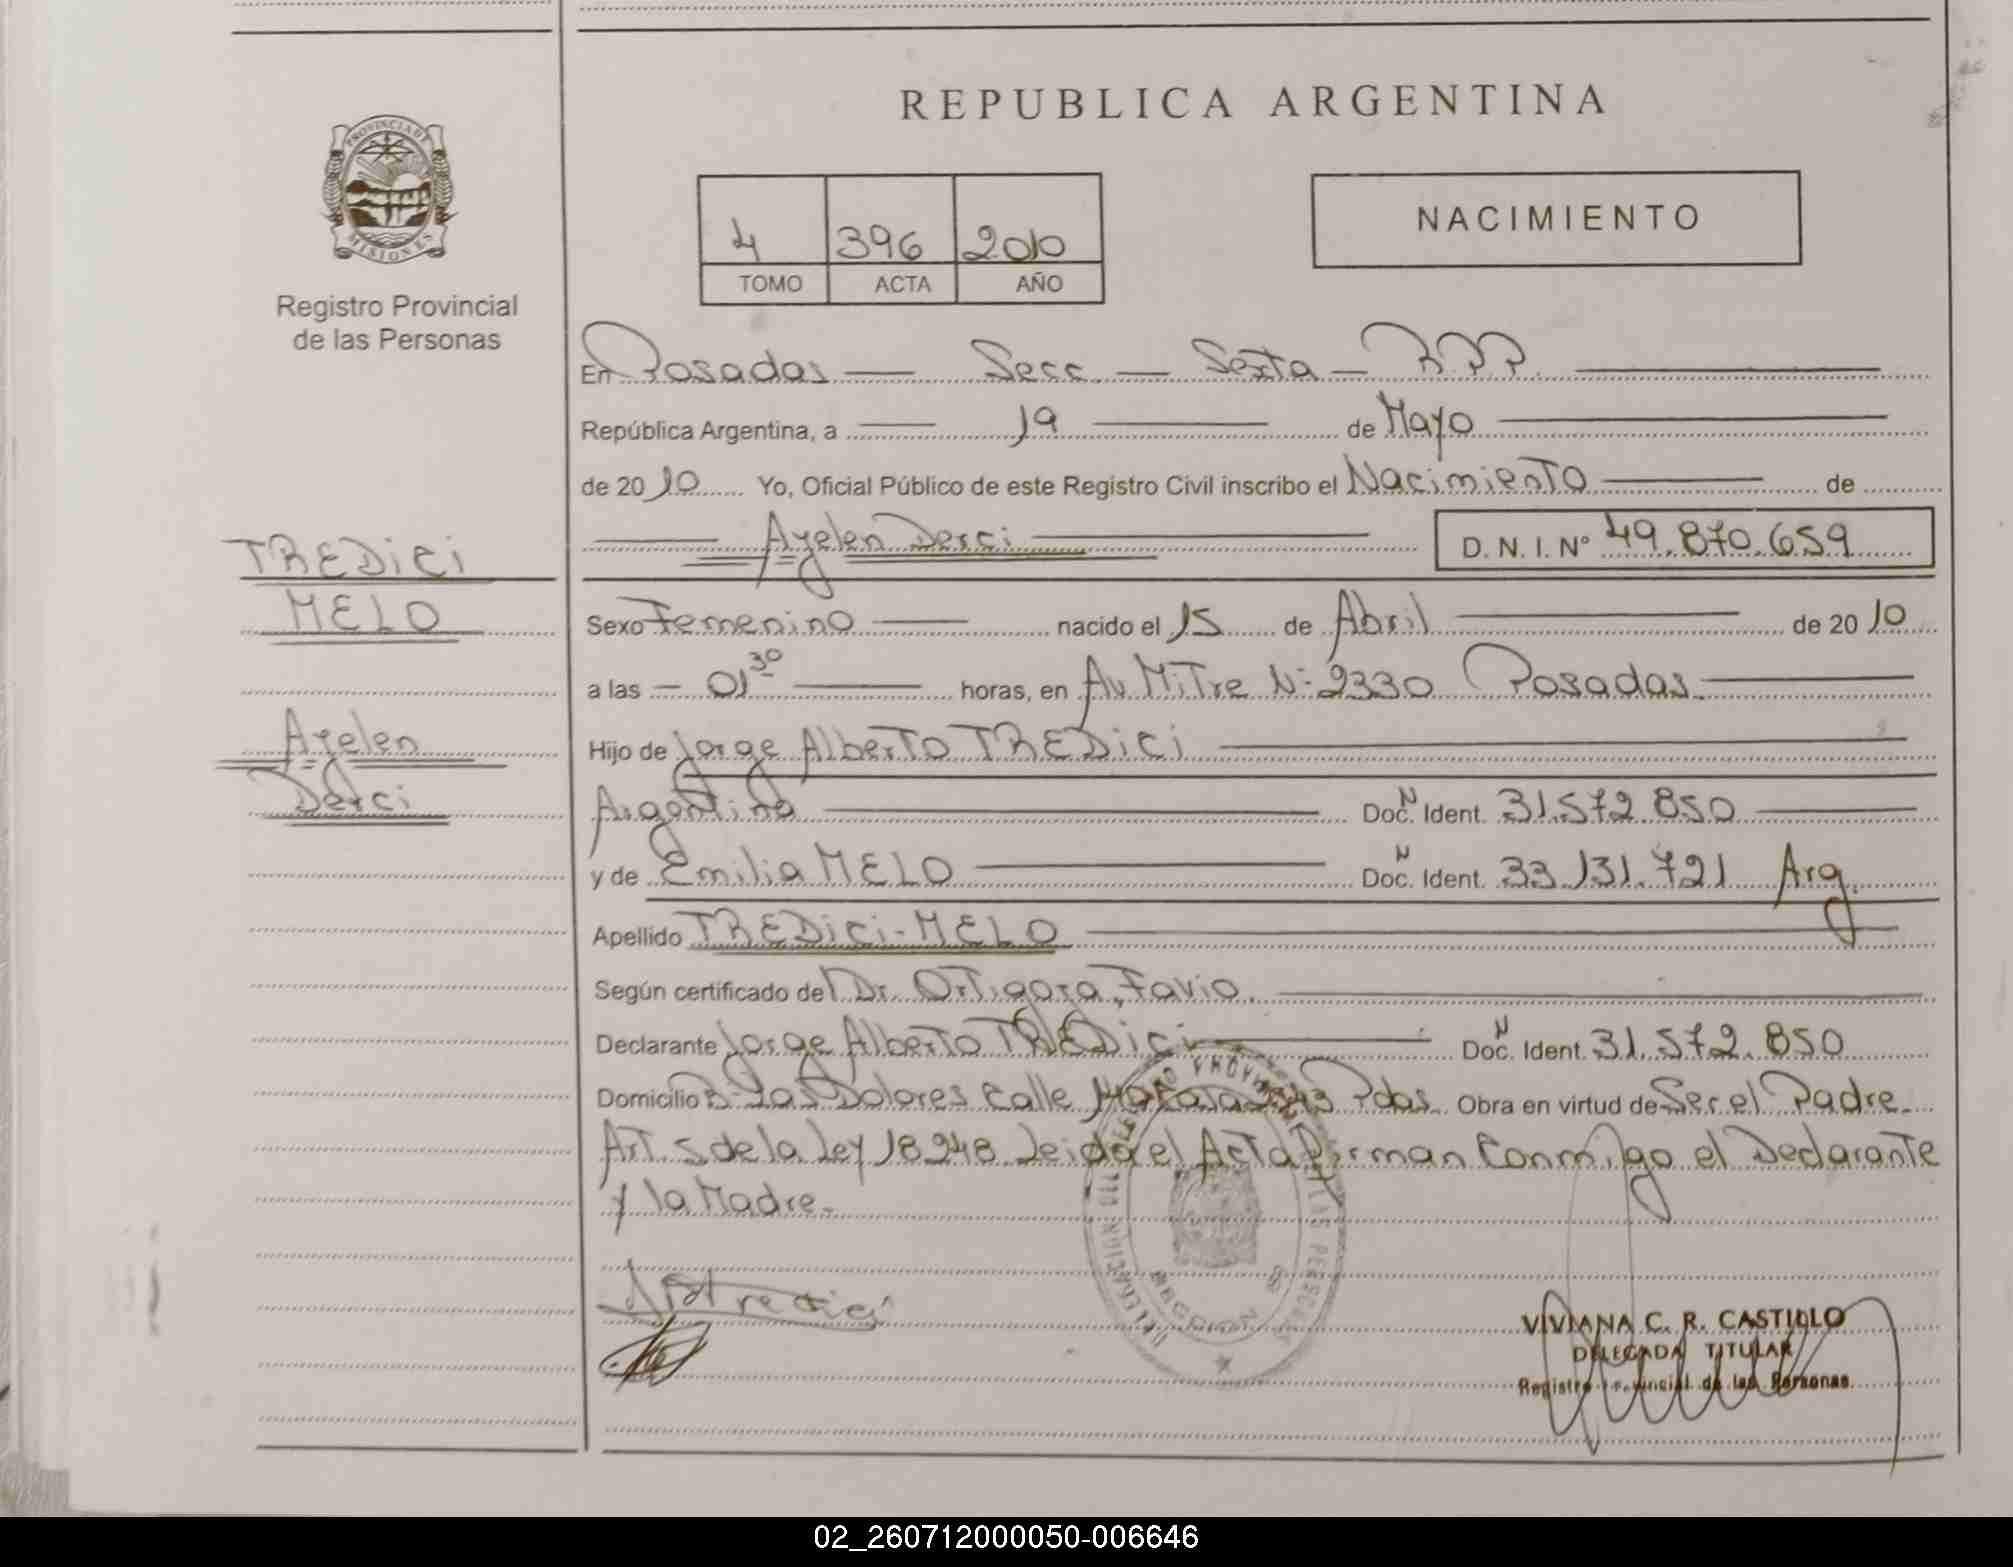 REPUBLICA ARGENTINA
PROVINCIA DE
MISIONES
Registro Provincial
de las Personas
NACIMIENTO
4 396 2010
TOMO ACTA AÑO
En Posadas — Secc. — Sexta — R.P.P.
República Argentina, a 19 de Mayo
de 2010 Yo, Oficial Público de este Registro Civil inscribo el Nacimiento de
Ayelen Derci D. N. I. Nº 49.870.659
TREDICI
MELO
Ayelen
Derci
Sexo Femenino nacido el 15 de Abril de 2010
a las — 01³⁰ horas, en Av. Mitre Nº 2330 Posadas.
Hijo de Jorge Alberto TREDICI
Argentina Doc. N Ident. 31.572.850
y de Emilia MELO Doc. N Ident. 33.131.721 Arg.
Apellido TREDICI-MELO
Según certificado del Dr. Ortigoza, Favio.
Declarante Jorge Alberto TREDICI Doc. N Ident. 31.572.850
Domicilio B- Las Dolores calle Pdas. Obra en virtud de Ser el Padre.
Art. 5 de la Ley 18248 Leida el Acta firman Conmigo el Declarante
y la Madre.
SECCION
VIVIANA C. R. CASTILLO
DELEGADA TITULAR
Registro Provincial de las Personas
02_260712000050-006646